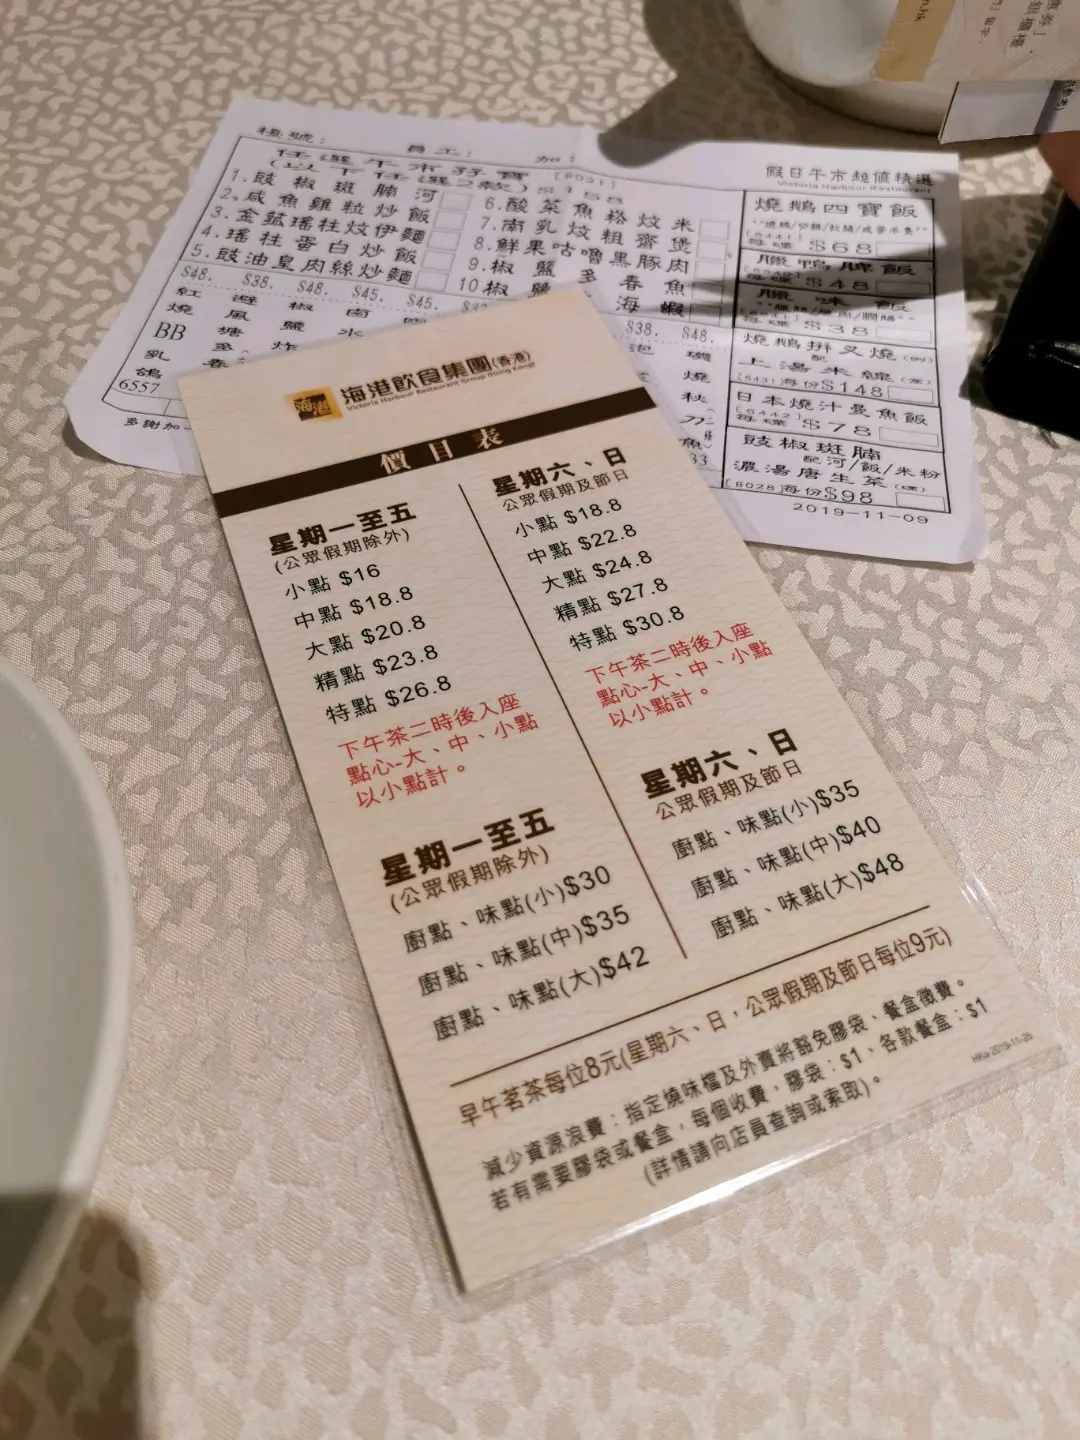 檯號：
員工：
加：
任選午市孖寶
(以下任選2款) $168
[8021]
1.豉椒斑腩河
2.咸魚雞粒炒飯
3.金菰瑤柱炆伊麵
4.瑤柱蛋白炒飯
5.豉油皇肉絲炒麵
6.酸菜魚崧炆米
7.南乳炆粗齋煲
8.鮮果咕嚕黑豚肉
9.椒鹽多春魚
10椒鹽海蝦
$48.
$38.
$48.
$45.
$45.
$38.
$48.
紅
避
椒
鹵
燒
風
鹽
水
BB
塘
乳
多
炸
鴿
春
6557
多謝加
磯
燒
秋
刀
魚
33
假日午市超值精選
Victoria Harbour Restaurant
燒鵝四寶飯
[6441]
每碟 $68
臘鴨脾飯
每碟 $48
臘味飯
每碟 $38
燒鵝拼叉燒(例)
配
上湯米線(窩)
[6431]每份$148
日本燒汁曼魚飯
[6442]
每碟 $78
豉椒斑腩
配河/飯/米粉
濃湯唐生菜(碟)
[8028]每份$98
2019-11-09
海港飲食集團(香港)
Victoria Harbour Restaurant Group (Hong Kong)
價目表
星期一至五
(公眾假期除外)
小點 $16
中點 $18.8
大點 $20.8
精點 $23.8
特點 $26.8
下午茶二時後入座
點心-大、中、小點
以小點計。
星期六、日
公眾假期及節日
小點 $18.8
中點 $22.8
大點 $24.8
精點 $27.8
特點 $30.8
下午茶二時後入座
點心-大、中、小點
以小點計。
星期一至五
(公眾假期除外)
廚點、味點(小)$30
廚點、味點(中)$35
廚點、味點(大)$42
星期六、日
公眾假期及節日
廚點、味點(小)$35
廚點、味點(中)$40
廚點、味點(大)$48
早午茗茶每位8元(星期六、日，公眾假期及節日每位9元)
減少資源浪費：指定燒味檔及外賣將豁免膠袋、餐盒徵費。
若有需要膠袋或餐盒，每個收費，膠袋：$1、各款餐盒：$1
(詳情請向店員查詢或索取)。
HKa-2019-11-28